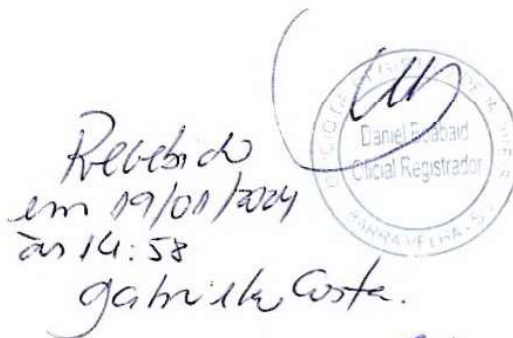 Recebido
em 19/01/2024
às 14:58
Gabriela Costa.
Daniel Boabaid
Oficial Registrador
BARRA VELHA - SC